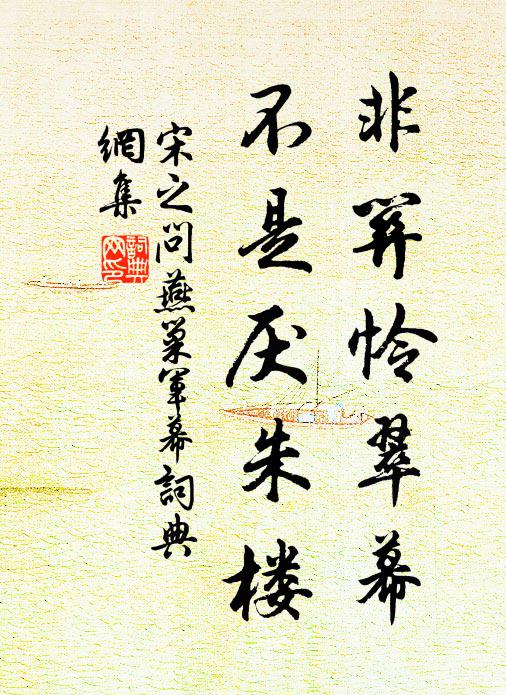 非关怜翠幕
不是厌朱楼
宋之问燕巢军幕词典
网集
词典
网印